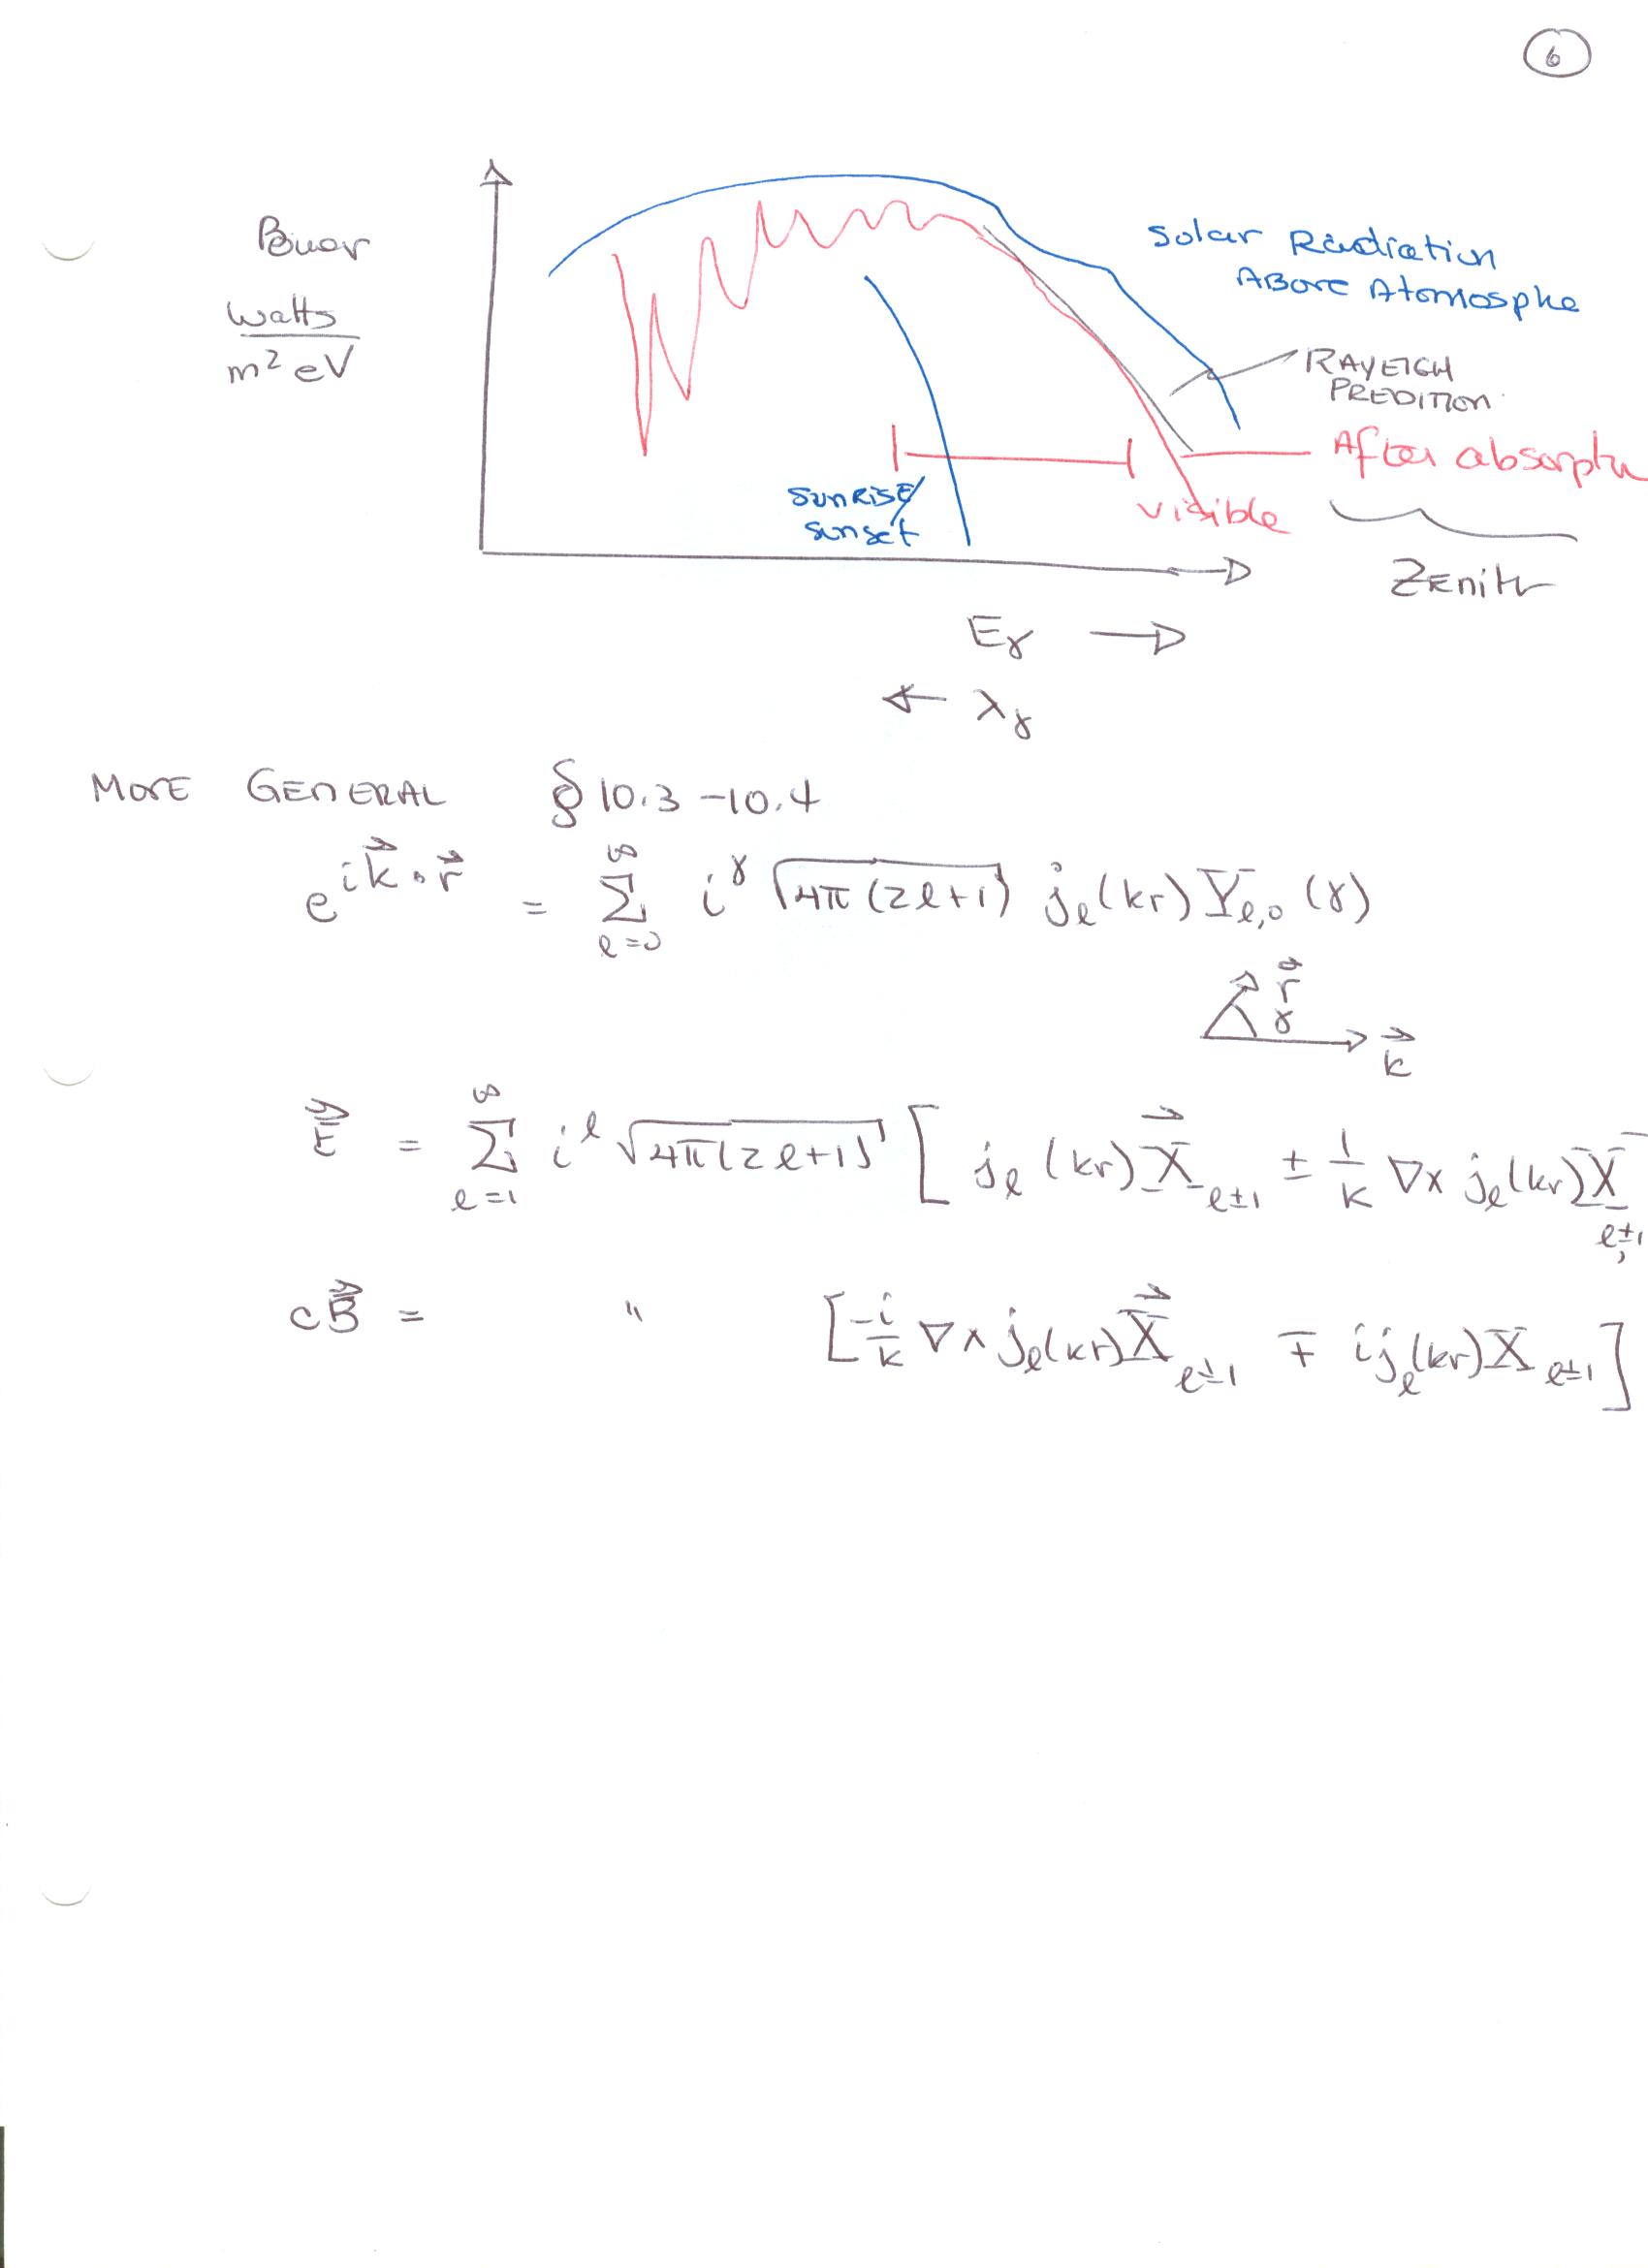 6
Power
Watts
m² eV
Solar Radiation
Above Atomosphe
RAYEIGH
PREDITION
After absorptn
visible
sunrise/
sunset
Zenith
Eγ →
← λγ
MORE GENERAL § 10.3 - 10.4
e^{i\vec{k}·\vec{r}} = ∑_{l=0}^{∞} i^γ √(4π(2l+1)) j_l(kr) Y_{l,0}(γ)
\vec{r}
γ
\vec{k}
\vec{E} = ∑_{l=1}^{∞} i^l √(4π(2l+1)) [ j_l(kr) \vec{X}_{l±1} ± 1/k ∇× j_l(kr) X_{l,±1}
c\vec{B} = " [ -i/k ∇× j_l(kr) \vec{X}_{l±1} ∓ i j_l(kr) X_{l±1} ]